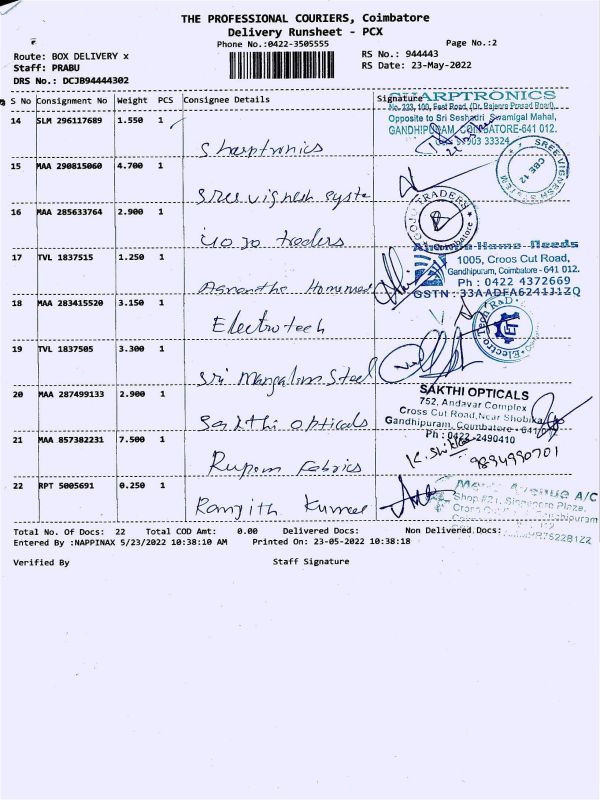 THE PROFESSIONAL COURIERS, Coimbatore
Delivery Runsheet - PCX
Phone No.:0422-3505555
Page No.:2
Route: BOX DELIVERY x
RS No.: 944443
Staff: PRABU
RS Date: 23-May-2022
DRS No.: DCJB94444302
S No Consignment No Weight PCS Consignee Details Signature
SHARPTRONICS
No. 223, 100, East Road, (Dr. Rajenra Prasad Road),
Opposite to Sri Seshadri Swamigal Mahal,
GANDHIPURAM, COIMBATORE-641 012.
93903 33324
14 SLM 296117689 1.550 1
Sharptronics
15 MAA 290815060 4.700 1
Sree vignesh syste
SREE VIGNESH SYSTEM
CBE 12
16 MAA 285633764 2.900 1
GOJO TRADERS
Coimbatore
Gojo traders
17 TVL 1837515 1.250 1
Home Needs
1005, Croos Cut Road,
Gandhipuram, Coimbatore - 641 012.
Ph : 0422 4372669
GSTN : 33AADFA6241J1ZQ
Homeneed
18 MAA 283415520 3.150 1
Electrotech
Electro Tech R&D
19 TVL 1837505 3.300 1
Sri Mangalam Steel
20 MAA 287499133 2.900 1
SAKTHI OPTICALS
752, Andavar Complex
Cross Cut Road, Near Shobika
Gandhipuram, Coimbatore - 641 012
Ph : 0422-2490410
Sakthi opticals
21 MAA 857382231 7.500 1
9894990701
Rupam Fabrics
22 RPT 5005691 0.250 1
Avenue A/C
Shop #21, Singapore Plaza,
Cross
Ranjith Kumar
Total No. Of Docs: 22 Total COD Amt: 0.00 Delivered Docs: Non Delivered Docs:
Entered By :NAPPINAX 5/23/2022 10:38:10 AM Printed On: 23-05-2022 10:38:18
Verified By Staff Signature